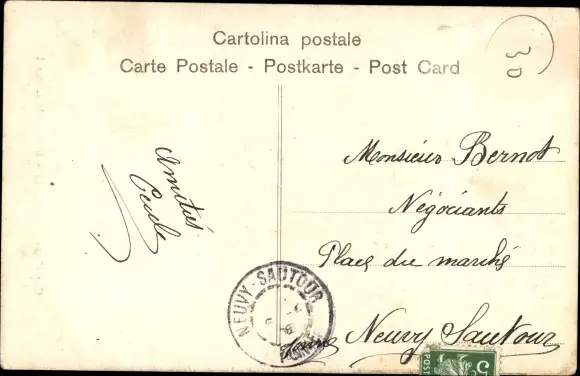 Cartolina postale
Carte Postale - Postkarte - Post Card
30
Amitiés
Monsieur Bernot
Négociants
Place du marché
Neuvy Sautour
Yonne
NEUVY-SAUTOUR
POST
5